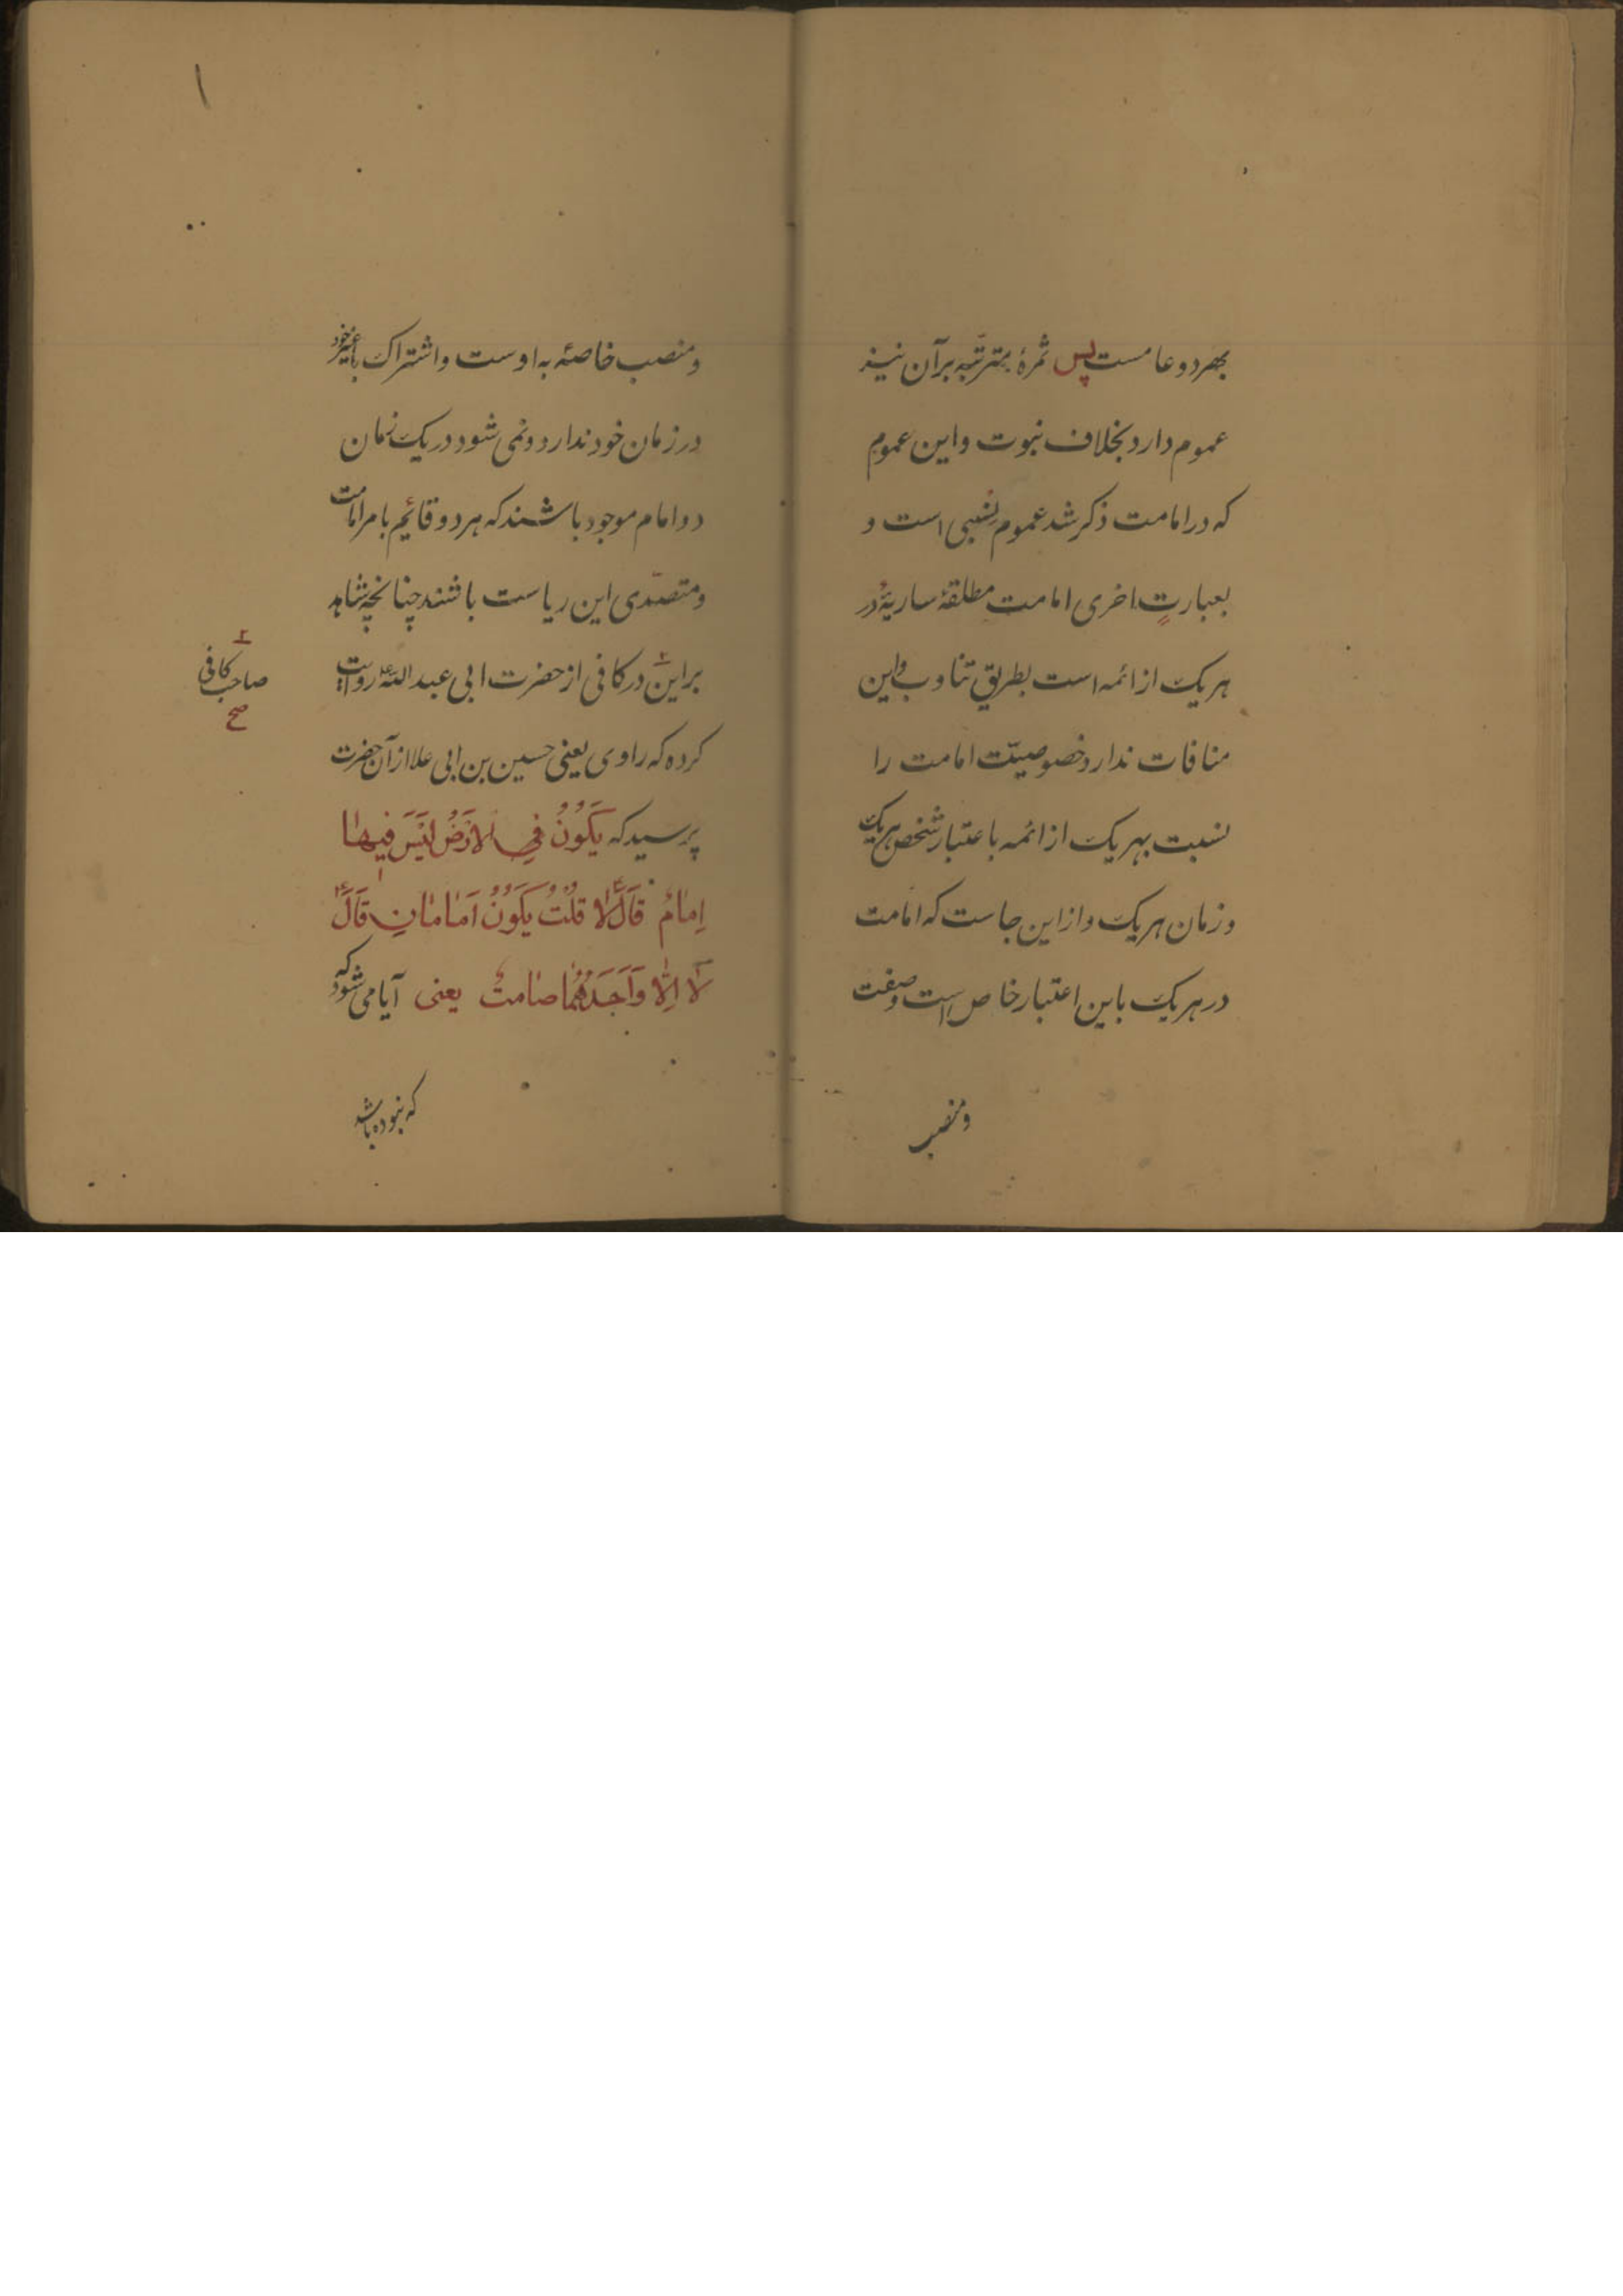 بهر دو عامست پس ثمرهٔ مترتّبه برآن نیز
عموم دارد بخلاف نبوت و این عموم
که در امامت ذکر شد عموم نسبی است و
بعبارتٍ اخری امامت مطلقهٔ ساریهٔ در
هر یک از ائمه است بطریق تناوب و این
منافات ندارد خصوصیّت امامت را
نسبت بهر یک از ائمه باعتبار شخص هریک
و زمان هر یک و از این جاست که امامت
در هر یک باین اعتبار خاص است و صفت
و منصب
و منصب خاصهٔ به اوست و اشتراک باغیر خود
در زمان خود ندارد و نمی شود در یک زمان
دو امام موجود باشند که هر دو قائم بامر امامت
و متصدّی این ریاست باشند چنانچه شاهد
براین در کافی از حضرت ابی عبدالله ع روایت
صاحب کافی
صح
کرده که راوی یعنی حسین بن ابی علا از آن حضرت
پرسید که یَکُونُ فِی الاَرْضُ لَیْسَ فیهٰا
اِمٰامُ قٰالَ ع لٰا قُلْتُ یَکُونُ اَمٰامٰانِ قٰالَ ع
لٰا اِلّٰا وَاَحَدُهُمٰا صٰامتُ یعنی آیا می شود که
که نبوده باشد